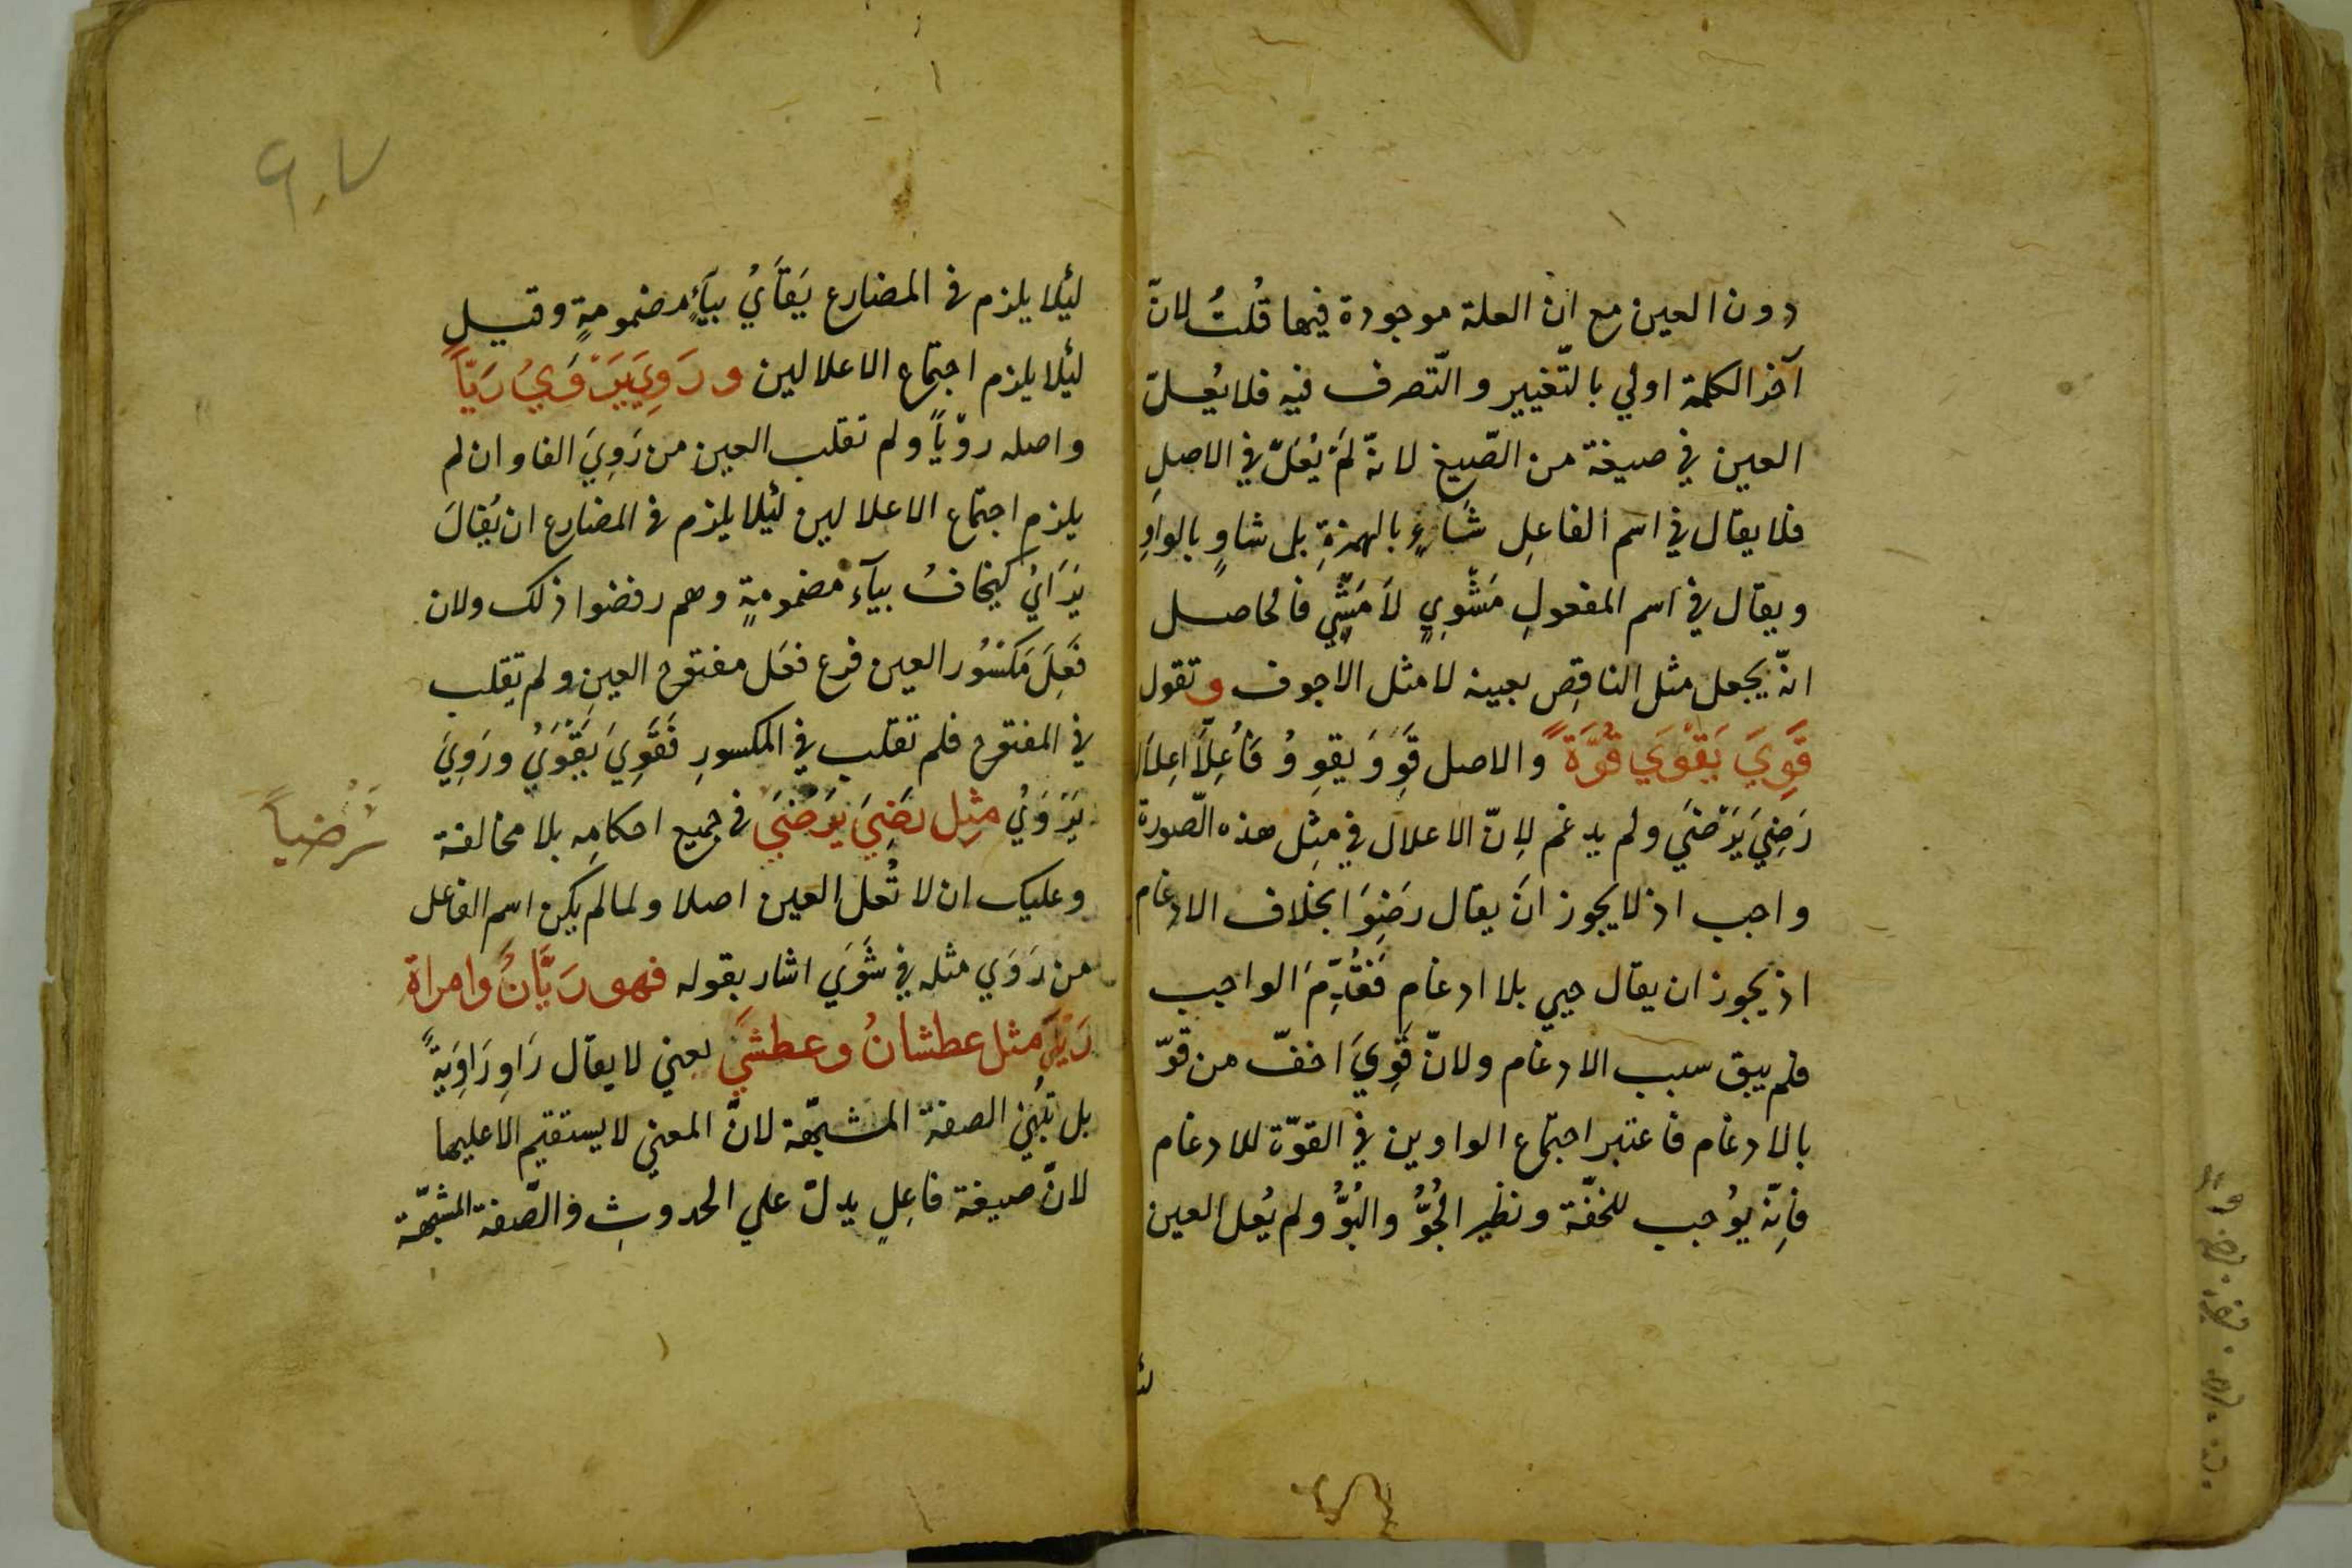 دون العين مع ان العلة موجودة فيها قُلتُ لانّ
آخر الكلمة اولي بالتّغيير والتّصرف فيه فلا يُعلّ
العين في صيغة من الصّيغ لانّه لَمْ يُعَلّ في الاصلِ
فلا يقال في اسم الفاعلِ شَاءٍ بالهمزةِ بل شاوٍ بالواوِ
ويقال في اسم المفعولِ مَشْوِيٍ لاَ مَشِّيٍ فالحاصل
انّه يجعل مثل الناقِص بعينه لا مثل الاجوف وتقول
قَوِيَ يَقْوَي قُوَّةً والاصل قَوِوَ يقوِوُ فَأُعِلّاَ اِعِلاَلَ
رَضِيَ يَرْضَي ولم يدغم لِانّ الاعلال في مِثِل هذه الّصورة
واجب اذ لا يجوز انَ يقال رَضِوَ بخلاف الادغام
اذ يجوز ان يقال حيي بلا ادغامٍ فَقُدِّمَ الواجب
فلم يبق سبب الادغام ولانّ قَوِيَ اخفّ من قوّ
بالادغام فاعتبر اجتماع الواوين في القوّة للادغام
فاِنّه يوُجب للخفّة ونظير الجُوُّ والبُوُّ ولم يُعل العين
لئ
لئلا يلزم في المضارع يَقَأيُ بيآءٍ مضمومةٍ وقيل
لئلا يلزم اجتماع الاعلالين ورَوِيَ يَرْوَيُ رَيّاً
واصله روّياً ولم تقلب العين من رَوِيَ الفا وان لم
يلزم اجتماع الاعلالين لئلا يلزم في المضارع ان يُقالَ
يَرَايُ كيخافُ بيآء مضمومةٍ وهم رفضوا ذلك ولان
فَعِلَ مَكسُور العين فرع فعَل مفتوح العينِ ولم تقلب
في المفتوح فلم تقلب في المكسورِ فَقَوِيَ يَقْوَيُ ورَوِيَ
يَرْوَيُ مثِل رَضِيَ يَرْضَي في جميع احكامِه بلا مخالفة
رَضياً
وعليك ان لا تُعل العين اصلا ولما لم يكن اسم الفاعل
من رَوَي مثله في شَوَي اشار بقوله فهو رَيَّانٌ وامراة
رَيَّي مثل عطشانُ وعطشَي يعني لا يقال رَاوٍ رَاوِيَةً
بل تُبْني الصفة المشبّهة لانّ المعني لا يستقيم الا عليها
لانّ صيغة فاعِلٍ يدلّ علي الحدوثِ والصّفة المشبّهة